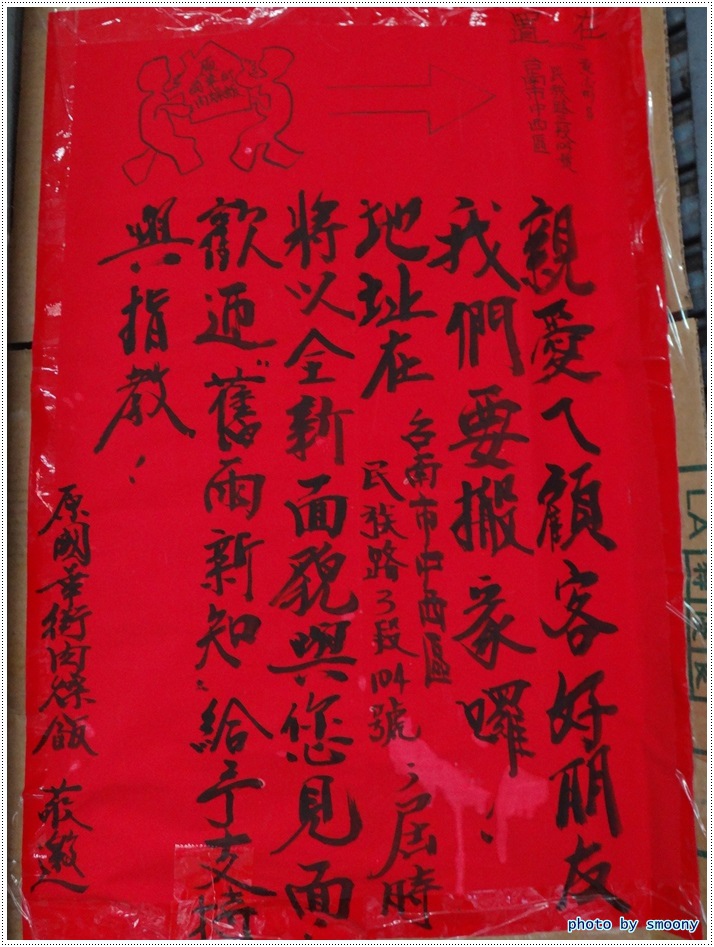 親愛ㄟ顧客好朋友
我們要搬家囉!
地址在台南市中西區
民族路3段104號,屆時
將以全新面貌與您見面,
歡迎舊雨新知給予支持
與指教!
原國華街肉燥飯 敬啟
台南市中西區
photo by smoony